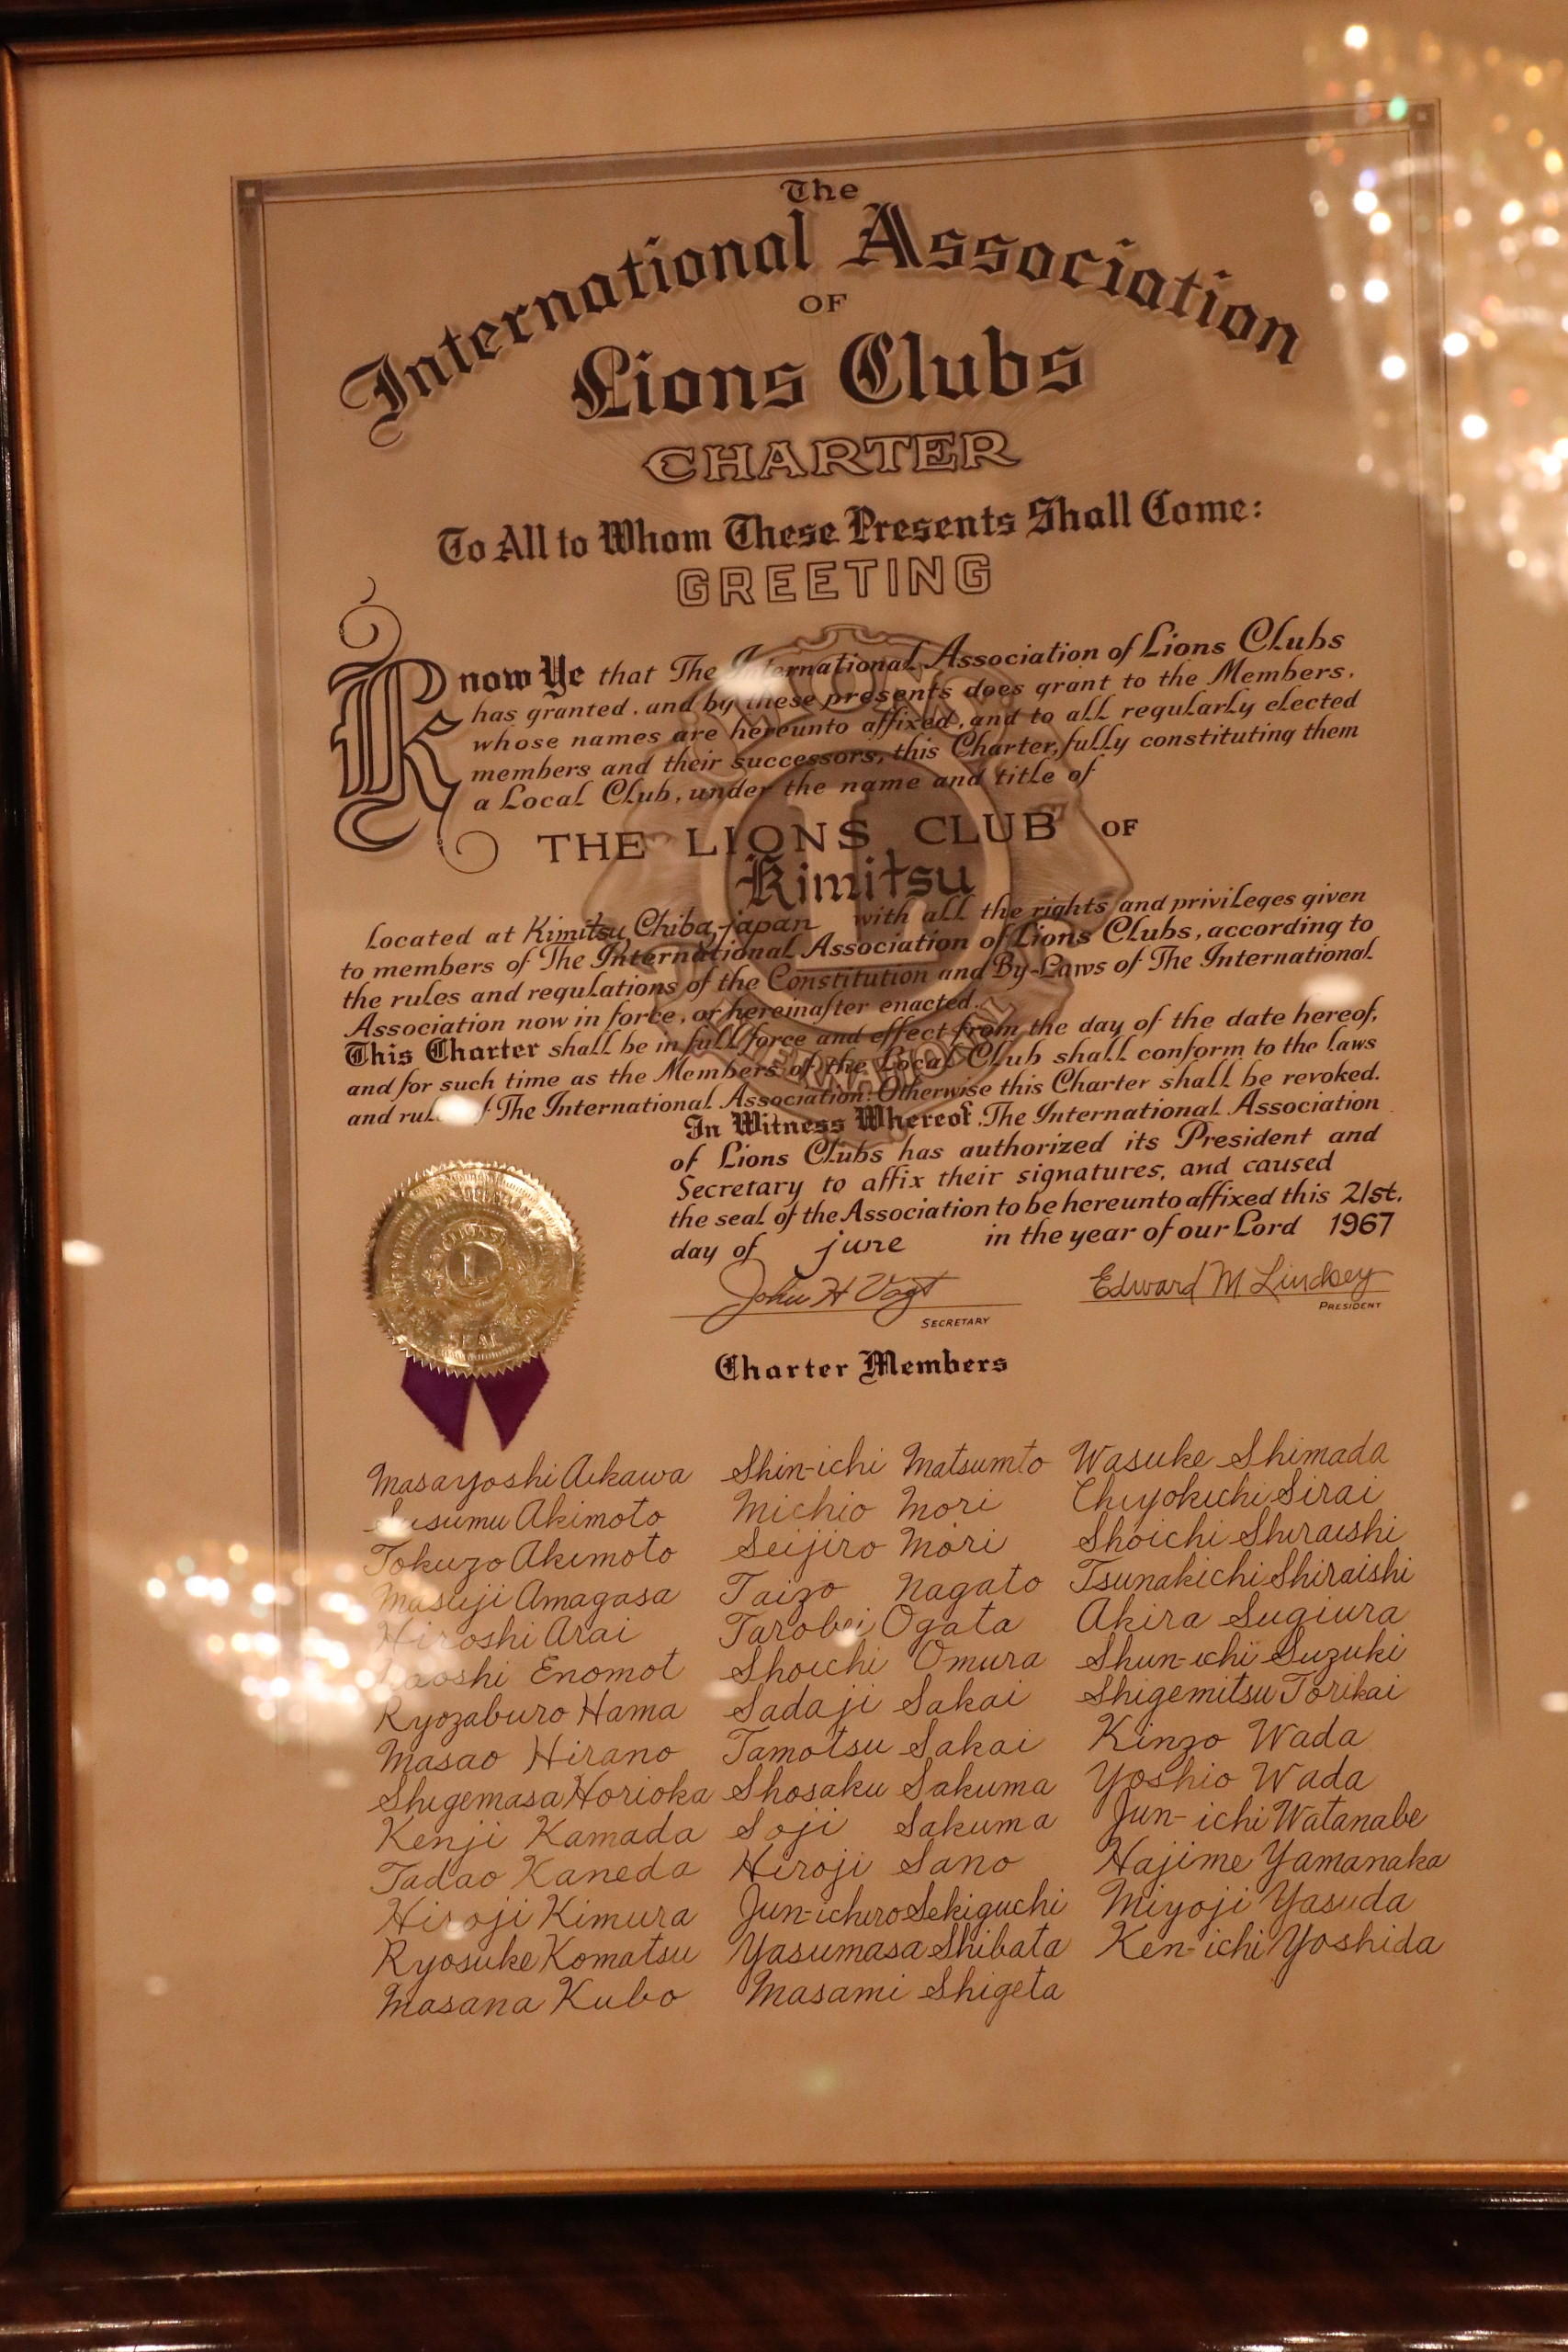 The
International Association
OF
Lions Clubs
CHARTER
To All to Whom These Presents Shall Come:
GREETING
Know Ye that The International Association of Lions Clubs
has granted, and by these presents does grant to the Members,
whose names are hereunto affixed, and to all regularly elected
members and their successors, this Charter, fully constituting them
a Local Club, under the name and title of
THE LIONS CLUB OF
Kimitsu
Located at Kimitsu, Chiba, japan with all the rights and privileges given
to members of The International Association of Lions Clubs, according to
the rules and regulations of the Constitution and By-Laws of The International
Association now in force, or hereinafter enacted.
This Charter shall be in full force and effect from the day of the date hereof,
and for such time as the Members of the Local Club shall conform to the laws
and rules of The International Association: Otherwise this Charter shall be revoked.
In Witness Whereof, The International Association
of Lions Clubs has authorized its President and
Secretary to affix their signatures, and caused
the seal of the Association to be hereunto affixed this 21st.
day of june in the year of our Lord 1967
John H Vogt Edward M Lindsey
SECRETARY PRESIDENT
Charter Members
Masayoshi Aikawa Shin-ichi Matsumto Wasuke Shimada
Susumu Akimoto Michio Mori Chiyokichi Sirai
Tokuzo Akimoto Seijiro Mori Shoichi Shiraishi
Masuji Amagasa Taizo Nagato Tsunakichi Shiraishi
Hiroshi Arai Tarobei Ogata Akira Sugiura
Enomot Shoichi Omura Shun-ichi Suzuki
Ryozaburo Hama Sadaji Sakai Shigemitsu Torikai
Masao Hirano Tamotsu Sakai Kinzo Wada
Shigemasa Horioka Shosaku Sakuma Yoshio Wada
Kenji Kamada Soji Sakuma Jun-ichi Watanabe
Tadao Kaneda Hiroji Sano Hajime Yamanaka
Hiroji Kimura Jun-ichiro Sekiguchi Miyoji Yasuda
Ryosuke Komatsu Yasumasa Shibata Ken-ichi Yoshida
Masana Kubo Masami Shigeta